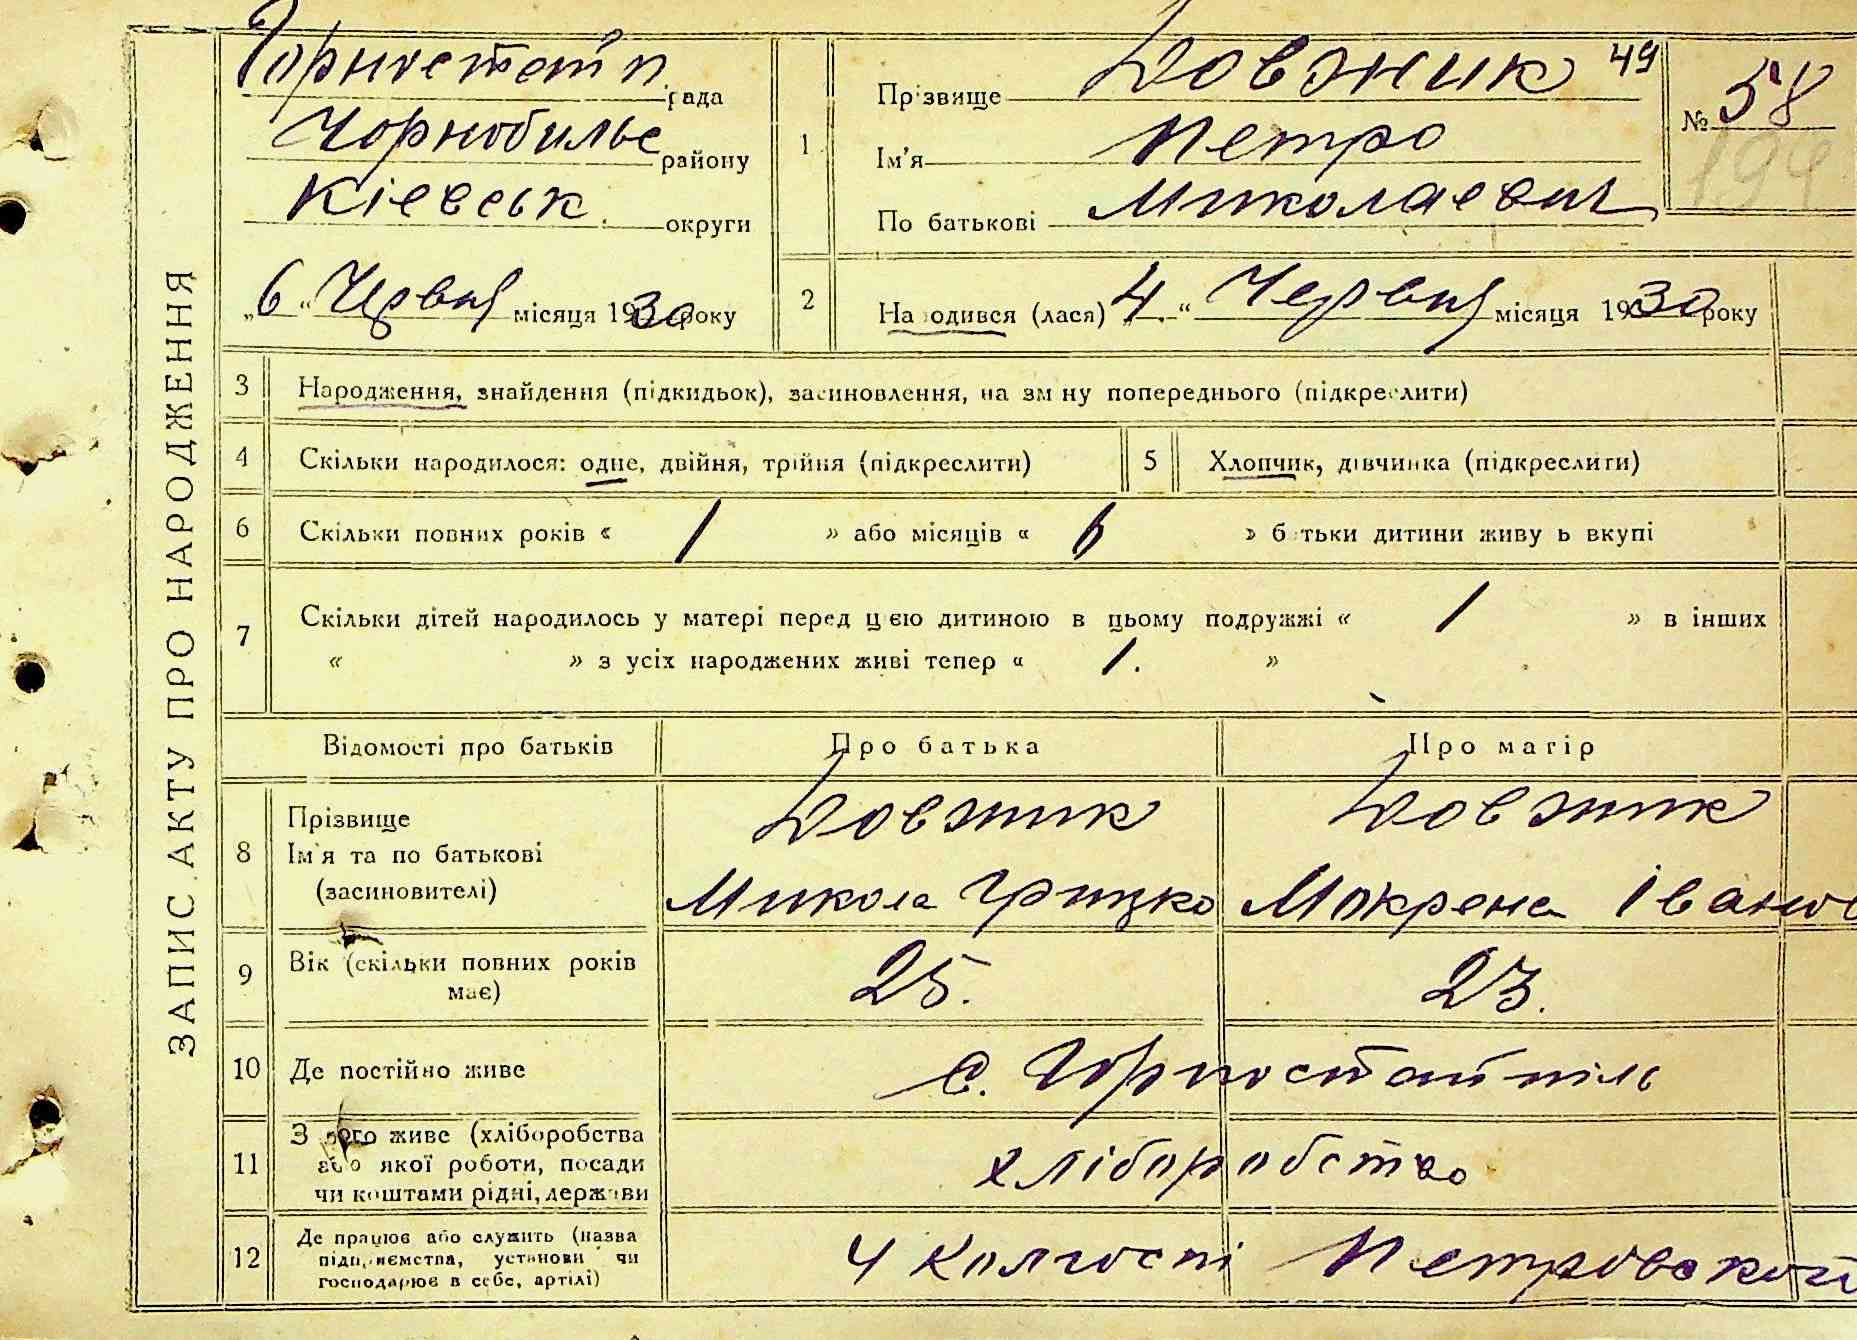 ЗАПИС АКТУ ПРО НАРОДЖЕННЯ
Горностайп. рада
Чорнобильс району
Кіевськ. округи
„6“ Червня місяця 1930 року
1
Прізвище Довжик 49
Ім'я Петро
По батькові Миколаевич
№ 58
194
2 Народився (лася) „4“ Червня місяця 1930 року
3 Народження, знайдення (підкидьок), засиновлення, на зміну попереднього (підкреслити)
4 Скільки народилося: одне, двійня, трійня (підкреслити) 5 Хлопчик, дівчинка (підкреслити)
6 Скільки повних років « 1 » або місяців « 6 » батьки дитини живуть вкупі
7 Скільки дітей народилось у матері перед цією дитиною в цьому подружжі « 1 » в інших
« » з усіх народжених живі тепер « 1. »
Відомості про батьків Про батька Про матір
8 Прізвище Довжик Довжик
Ім'я та по батькові (засиновителі) Микола Грицко Мокрена Іванов
9 Вік (скільки повних років має) 25. 23.
10 Де постійно живе с. Горностайпіль
11 З чого живе (хліборобства або якої роботи, посади чи коштами рідні, держави хліборобство
12 Де працює або служить (назва підприємства, установи чи господарює в себе, артілі) У колгоспі Петровской